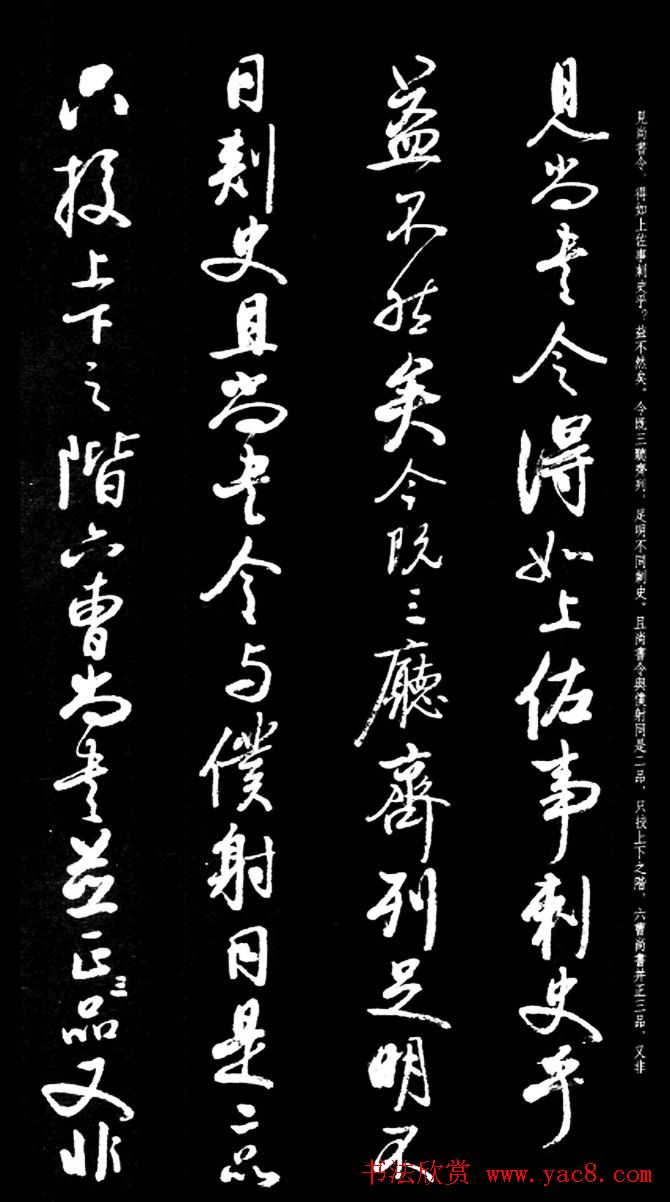 見尚書令、得如上佐事刺史乎？益不然矣、今既三廳齊列、足明不同刺史。且尚書令與僕射同是二品、只校上下之階、六曹尚書并正三品、又非
見尚書令得如上佐事刺史乎
益不然矣今既三廳齊列足明不
同刺史且尚書令与僕射同是二品
只校上下之階六曹尚書並正三品又非
书法欣赏 www.yac8.com